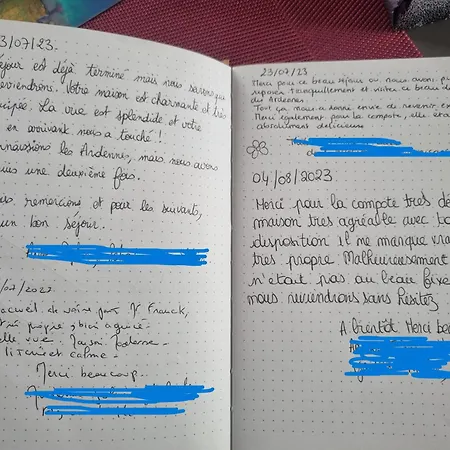 3/07/23.
éjour est déjà terminé mais nous savons qu
reviendrons. Votre maison est charmante et très
uipée. La vue est splendide et votre
en arrivant nous a touché !
nnaissions les Ardennes, mais nous avons
une deuxième fois.
us remercions et pour les suivants,
un bon séjour.
/07/2023
accueil de
propre, bien agencé -
elle vue -
literie et calme -
Merci beaucoup.
23/07/23
Merci pour ce beau séjour où nous avons pu
reposer tranquillement et visiter ce beau
des Ardennes.
Tout ça nous a donné envie de revenir
Merci également pour la compote, elle était
absolument délicieuse
04/08/2023
Merci pour la compote tres dé
maison tres agréable avec
disposition il me manque
tres propre Malheureusement
n'était pas au beau fixe
nous reviendrons sans hésitez
A bientôt Merci